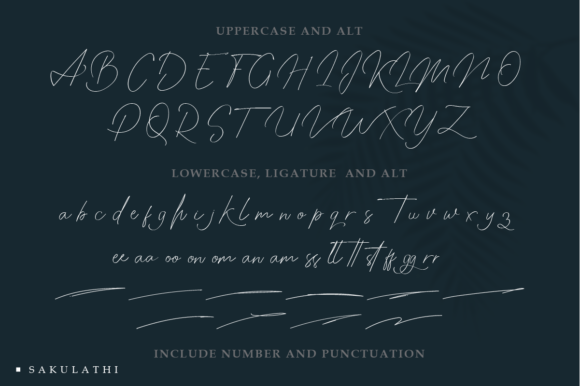 UPPERCASE AND ALT
A B C D E F G H I J K L M N O
P Q R S T U V W X Y Z
LOWERCASE, LIGATURE AND ALT
a b c d e f g h i j k l m n o p q r s T u v w x y z
ee aa oo on om an am ss ll tt st ff gg rr
INCLUDE NUMBER AND PUNCTUATION
SAKULATHI